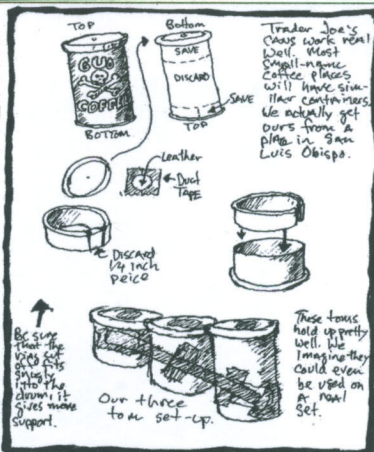 TOP
BUD
COFFEE
BOTTOM
Bottom
SAVE
DISCARD
SAVE
TOP
Trader Joe's
cans work real
well. Most
small-name
coffee places
will have sim-
ilar containers.
We actually get
ours from a
place in San
Luis Obispo.
Leather
Duct
TAPE
Discard
1/4 inch
peice
Be sure
that the
ring cut
out fits
snugly
into the
drum, it
gives more
support.
Our three
tom set-up.
These toms
hold up pretty
well. We
imagine they
could even
be used on
a real
set.